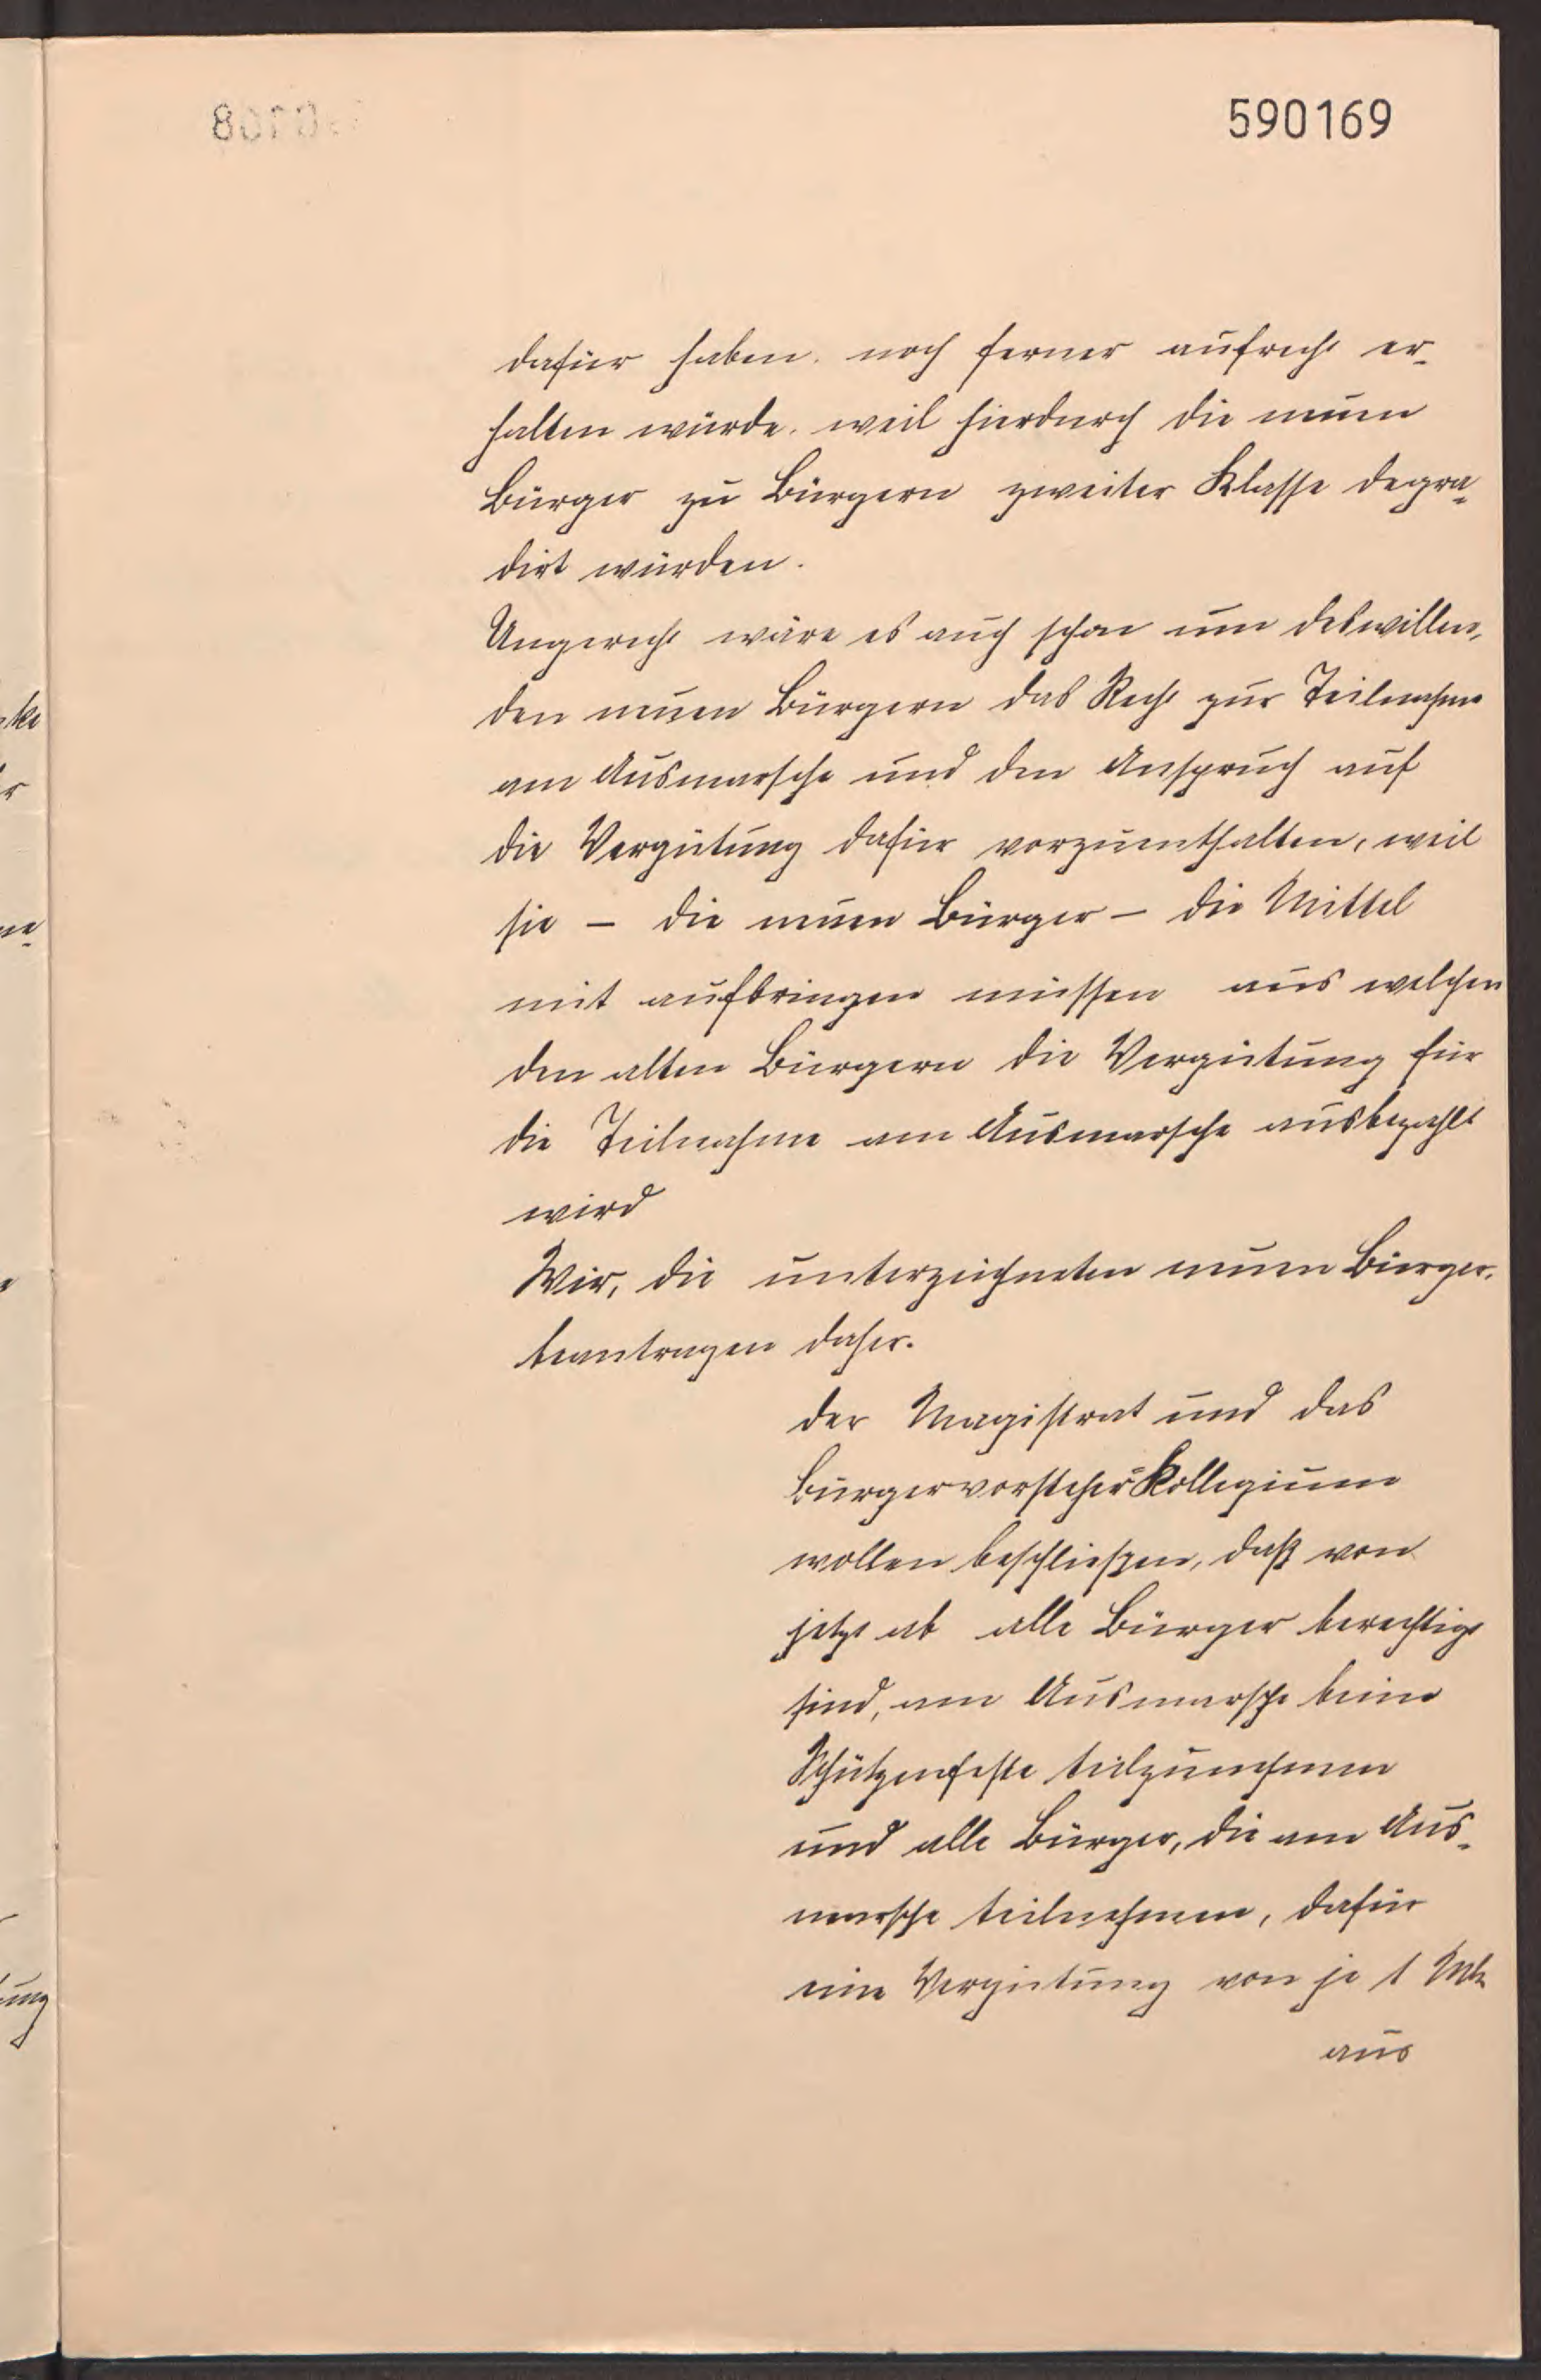 590169
dafür haben, noch ferner aufrecht er-
halten würde, weil hierdurch die neuen
Bürger zu Bürgern zweiter Klasse degra-
dirt würden.
Ungerecht wäre es auch schon um deswillen,
den neuen Bürgern das Recht zur Teilnahme
am Ausmarsche und den Anspruch auf
die Vergütung dafür vorzuenthalten, weil
sie – die neuen Bürger – die Mittel
mit aufbringen müssen aus welchen
den alten Bürgern die Vergütung für
die Teilnahme am Ausmarsche ausbezahlt
wird
Wir, die unterzeichneten neuen Bürger,
beantragen daher.
der Magistrat und das
Bürgervorsteher-Kollegium
wollen beschließen, daß von
jetzt ab alle Bürger berechtigt
sind, am Ausmarsche beim
Schützenfeste teilzunehmen
und alle Bürger, die am Aus-
marsche teilnehmen, dafür
eine Vergütung von je 1 Mk
aus